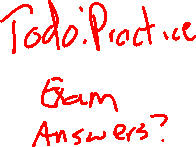 Todo: Practice
Exam
Answers?